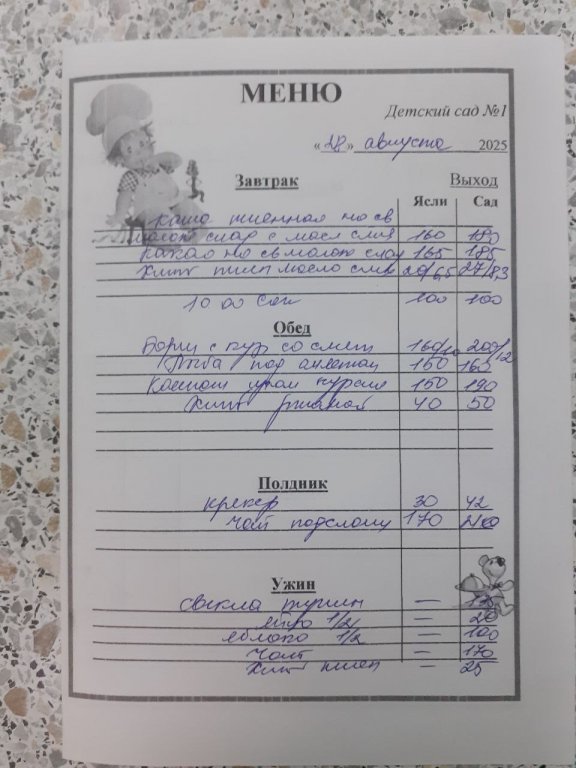 МЕНЮ
Детский сад №1
«28» августа 2025
Завтрак Выход
Ясли Сад
каша пшенная на св
молоке слад с масл слив 160 180
какао на св молоке слад 165 185
Хлеб пшен масло слив 20/6,5 27/8,3
10 00 Сок 100 100
Обед
Борщ с кур со смет 160/10 200/12
Рыба под омлетом 150 165
Компот 150 190
Хлеб ржаной 40 50
Полдник
крекер 30 42
чай подслащ 170 200
Ужин
свекла тушен —
яйцо 1/2 — 20
яблоко 1/2 — 100
чай — 170
Хлеб пшен — 25